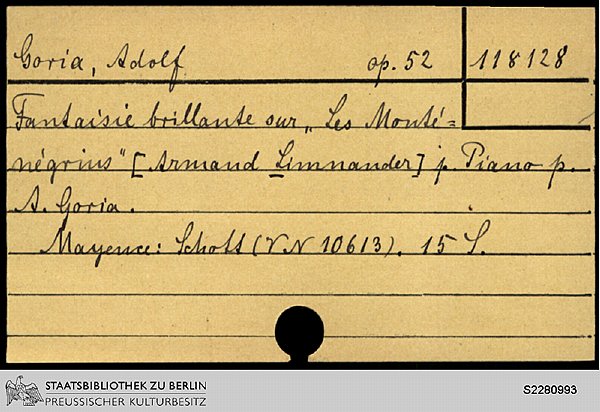 Goria, Adolf op. 52 118128
Fantaisie brillante sur „Les Monté-
négrins" [Armand Limnander] p. Piano p.
A. Goria.
Mayence: Schott (VN 10613). 15 S.
STAATSBIBLIOTHEK ZU BERLIN
PREUSSISCHER KULTURBESITZ
S2280993